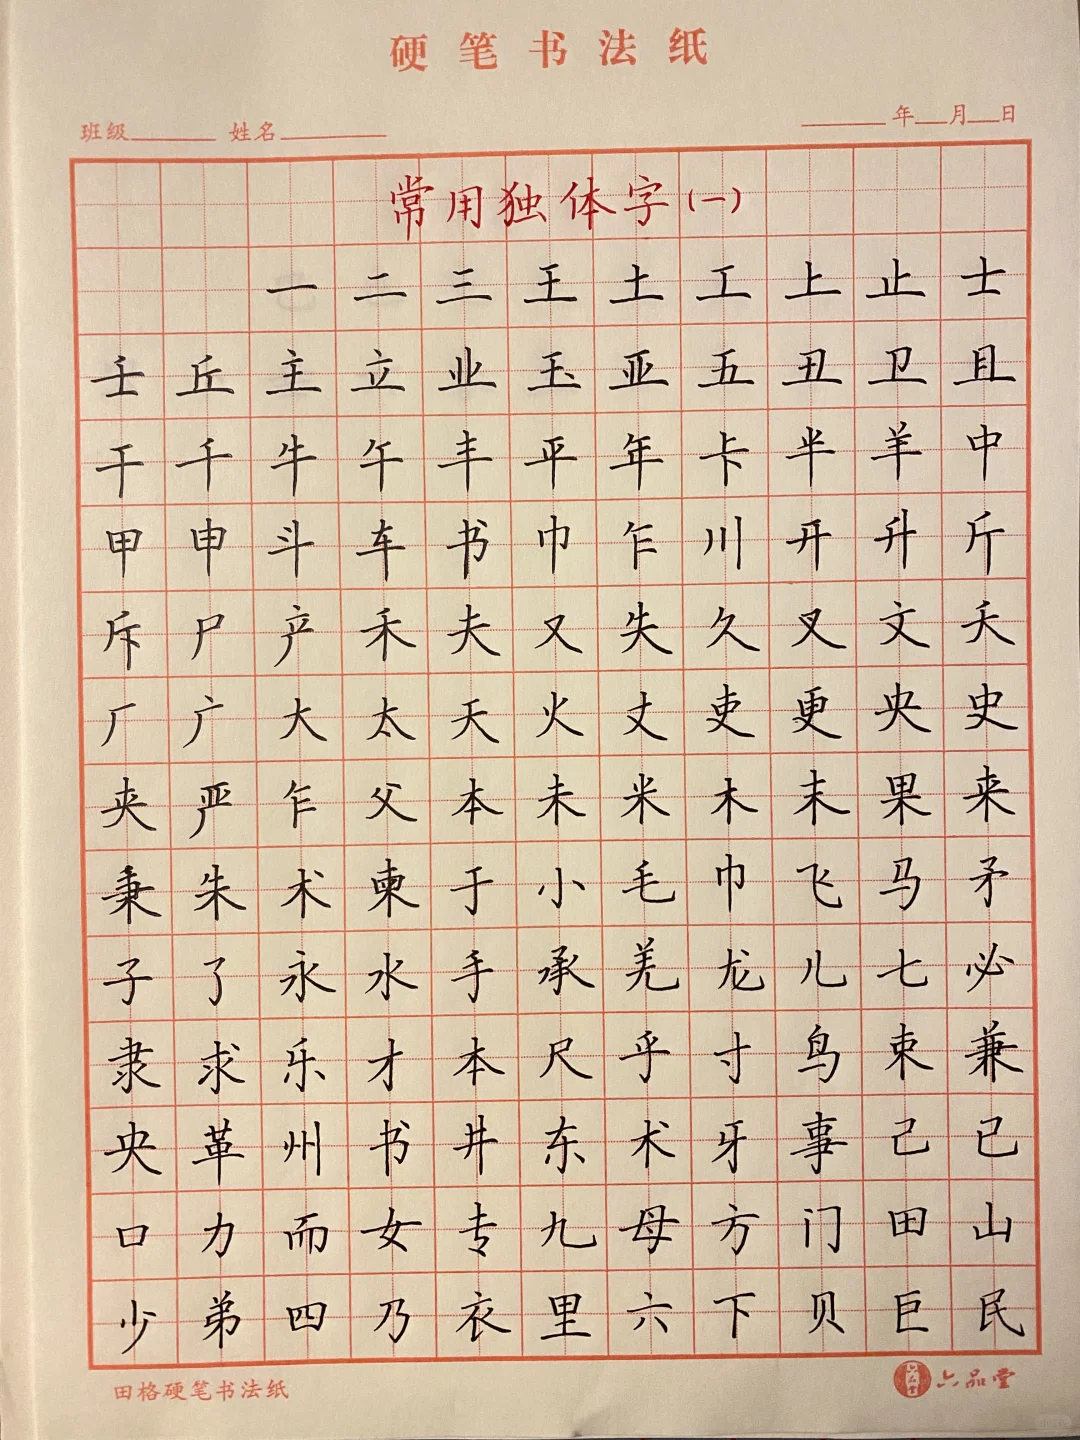 硬笔书法纸
班级 姓名 年 月 日
常用独体字(一)
一 二 三 王 土 工 上 止 士
壬 丘 主 立 业 玉 亚 五 丑 卫 且
干 千 牛 午 丰 平 年 卡 半 羊 中
甲 申 斗 车 书 巾 乍 川 开 升 斤
斥 尸 产 禾 夫 又 失 久 叉 文 夭
厂 广 大 太 天 火 丈 吏 更 央 史
夹 严 乍 父 本 未 米 木 末 果 来
秉 朱 术 柬 于 小 毛 巾 飞 马 矛
子 了 永 水 手 承 羌 龙 儿 七 必
隶 求 乐 才 本 尺 乎 寸 鸟 束 兼
央 革 州 书 井 东 术 牙 事 己 已
口 力 而 女 专 九 母 方 门 田 山
少 弟 四 乃 衣 里 六 下 贝 巨 民
田格硬笔书法纸 六品堂 六品堂